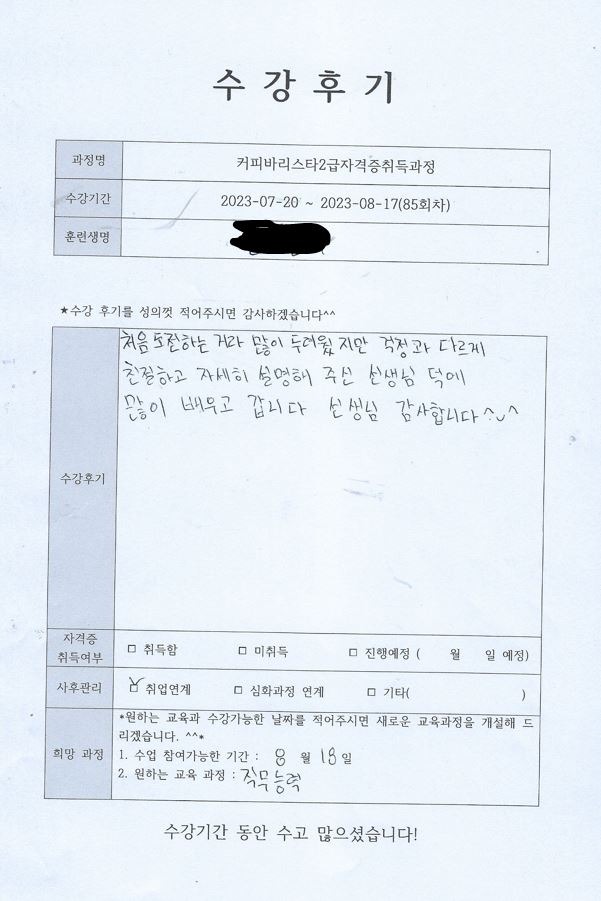 수강후기
과정명 커피바리스타2급자격증취득과정
수강기간 2023-07-20 ~ 2023-08-17(85회차)
훈련생명
★수강 후기를 성의껏 적어주시면 감사하겠습니다^^
수강후기
처음 도전하는 거라 많이 두려웠지만 걱정과 다르게
친절하고 자세히 설명해 주신 선생님 덕에
많이 배우고 갑니다 선생님 감사합니다^.^
자격증
취득여부 □ 취득함 □ 미취득 □ 진행예정 ( 월 일 예정)
사후관리 ☑ 취업연계 □ 심화과정 연계 □ 기타( )
희망 과정
*원하는 교육과 수강가능한 날짜를 적어주시면 새로운 교육과정을 개설해 드
리겠습니다. ^^*
1. 수업 참여가능한 기간 : 8 월 18 일
2. 원하는 교육 과정 : 직무능력
수강기간 동안 수고 많으셨습니다!